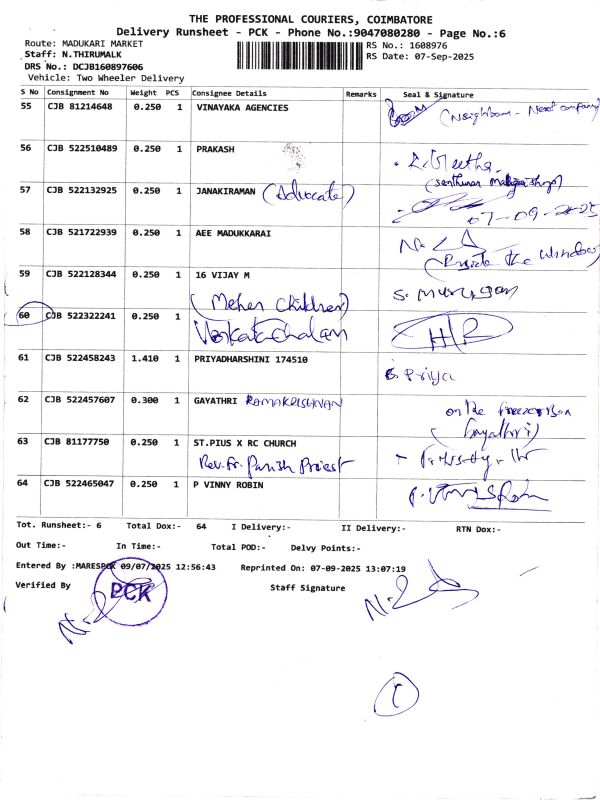 THE PROFESSIONAL COURIERS, COIMBATORE
Delivery Runsheet - PCK - Phone No.:9047080280 - Page No.:6
Route: MADUKARI MARKET
RS No.: 1608976
Staff: N.THIRUMALK
RS Date: 07-Sep-2025
DRS No.: DCJB160897606
Vehicle: Two Wheeler Delivery
S No Consignment No Weight PCS Consignee Details Remarks Seal & Signature
55 CJB 81214648 0.250 1 VINAYAKA AGENCIES
56 CJB 522510489 0.250 1 PRAKASH
57 CJB 522132925 0.250 1 JANAKIRAMAN (Advocate)
07-09-2025
58 CJB 521722939 0.250 1 AEE MADUKKARAI
59 CJB 522128344 0.250 1 16 VIJAY M
S. Murugan
(Meher Children)
60 CJB 522322241 0.250 1 Venkatachalam
61 CJB 522458243 1.410 1 PRIYADHARSHINI 174510
S. Priya
62 CJB 522457607 0.300 1 GAYATHRI RAMAKRISHNAN
on the freezer Box
(Gayathri)
63 CJB 81177750 0.250 1 ST.PIUS X RC CHURCH
Rev.Fr. Parish Priest
64 CJB 522465047 0.250 1 P VINNY ROBIN
Tot. Runsheet:- 6 Total Dox:- 64 I Delivery:- II Delivery:- RTN Dox:-
Out Time:- In Time:- Total POD:- Delvy Points:-
Entered By :MARESPCK 09/07/2025 12:56:43 Reprinted On: 07-09-2025 13:07:19
Verified By Staff Signature
PCK